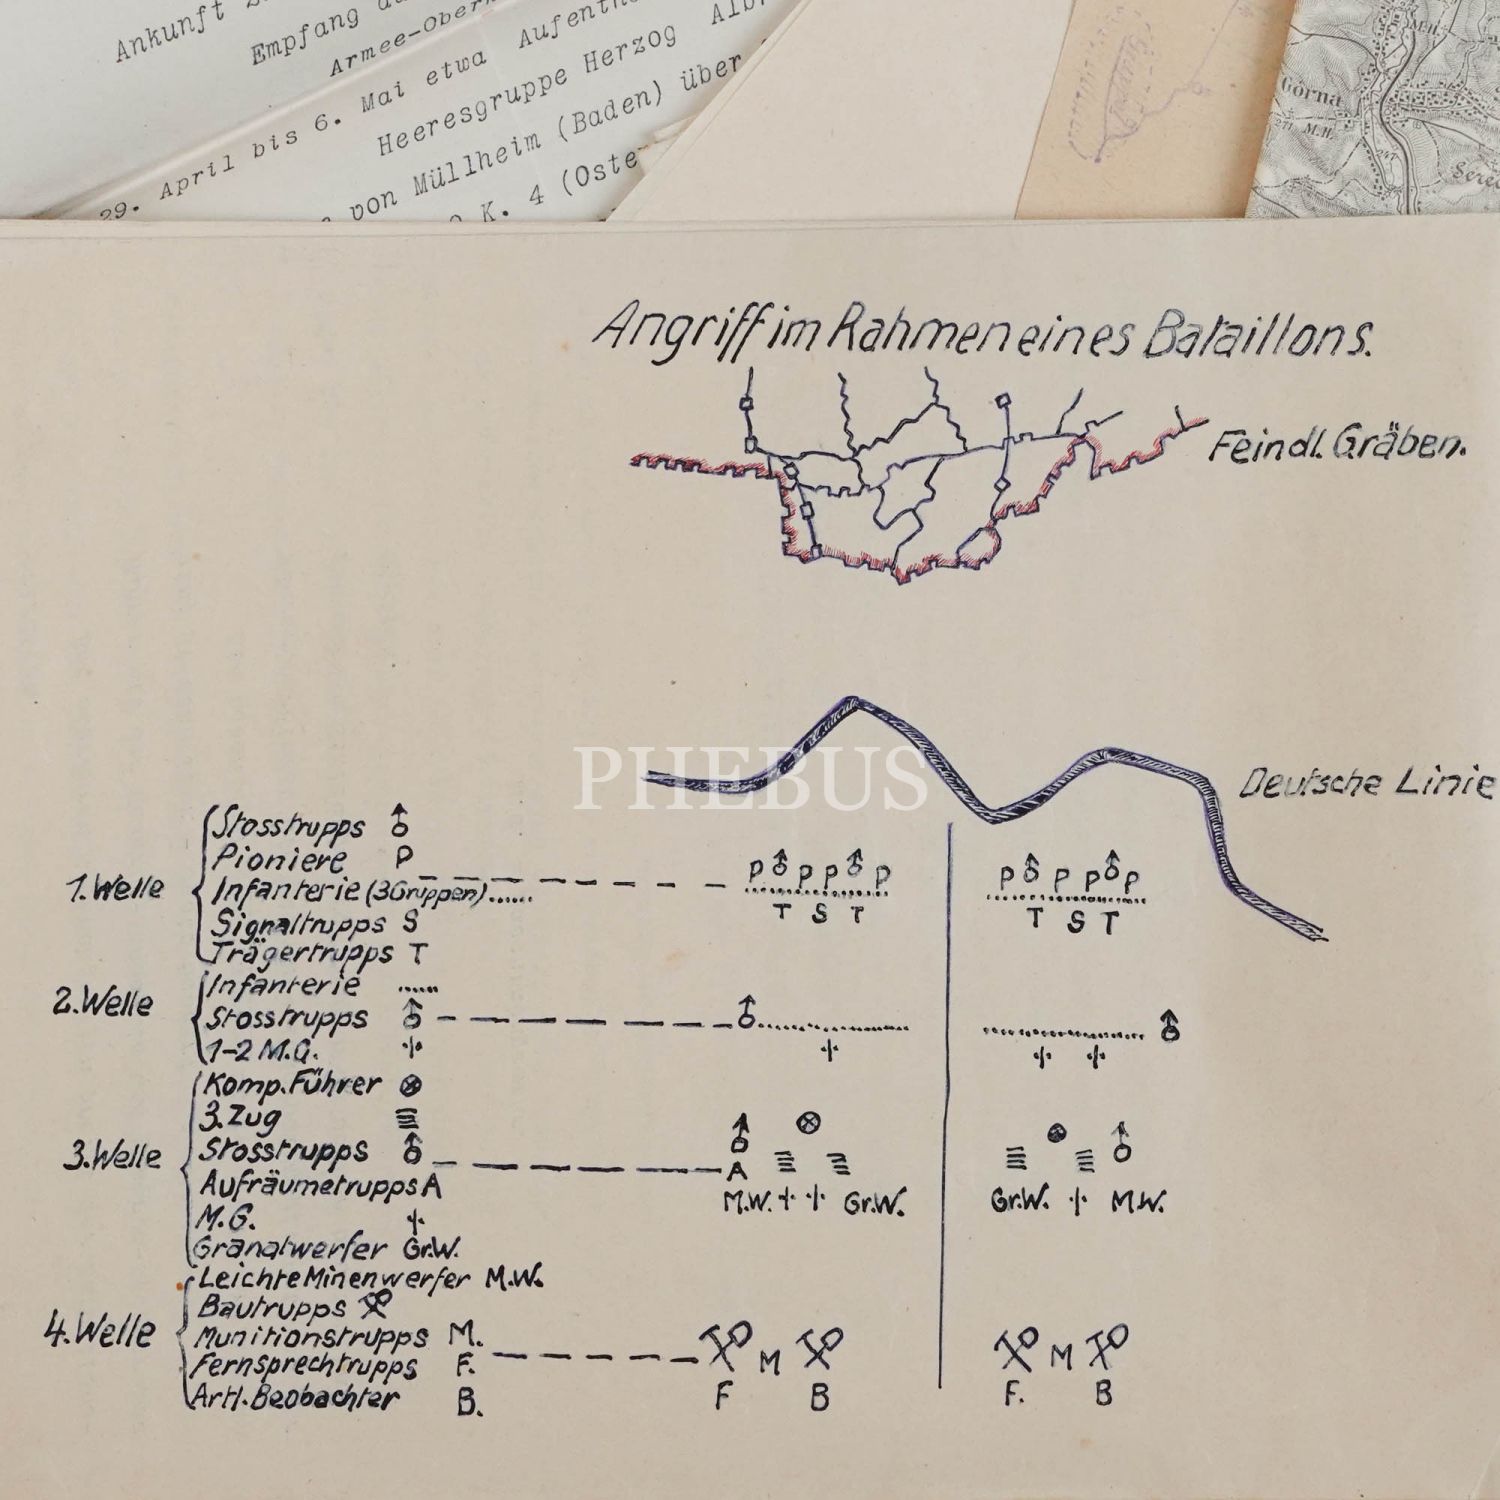 Ankunft
Empfang
Armee-Oberk
29. April bis 6. Mai etwa Aufenth
Heeresgruppe Herzog Alb
von Müllheim (Baden) über
K. 4 (Oste
Górna
M.H.
Angriff im Rahmen eines Bataillons.
Feindl. Gräben.
PHEBUS
Deutsche Linie
1. Welle
Stosstrupps
Pioniere P
Infanterie (3 Gruppen)......
Signaltrupps S
Trägertrupps T
P P P P
T S T
P P P P
T S T
2. Welle
Infanterie ......
Stosstrupps
1-2 M.G.
3. Welle
Komp. Führer
3. Zug
Stosstrupps
Aufräumetrupps A
M.G.
Granatwerfer Gr.W.
A
M.W. Gr.W.
Gr.W. M.W.
4. Welle
Leichte Minenwerfer M.W.
Bautrupps
Munitionstrupps M.
Fernsprechtrupps F.
Artl. Beobachter B.
M
F B
M
F. B